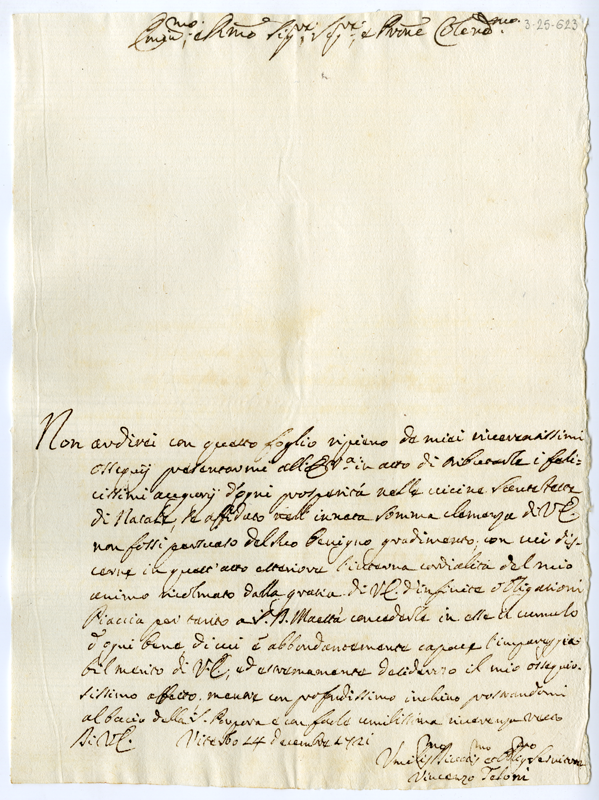 Emin.mo, e Rmo Sig.r, Sig.r, e Prone Colend.mo
3-25-623
Non ardirei con questo foglio ripieno de miei riverentissimi
ossequij presentarmi all'E.V.a in atto di tributarle i feli-
cissimi augurij d'ogni prosperità nelle vicine Sante feste
di Natale, se affidato nell'innata somma clemenza di V.E.
non fossi persuaso del Suo benigno gradimento, con cui dis-
cerne in quest'atto esteriore l'interna cordialità del mio
animo ricolmato dalla gratia di V.E. d'infinite obligationi
Piaccia per tanto a S. D. Maestà concederle in esse il cumulo
d'ogni bene di cui è abbondantemente capace l'impareggia-
bil merito di V.E., ed estremamente desidero il mio ossequio-
sissimo affetto, mentre con profondissimo inchino prostrandomi
al bacio della S. Porpora e con fare umilissima riverenza resto
Di V.E. Viterbo 24 decembre 1721
Umiliss.mo Servitore
Vincenzo Teloni